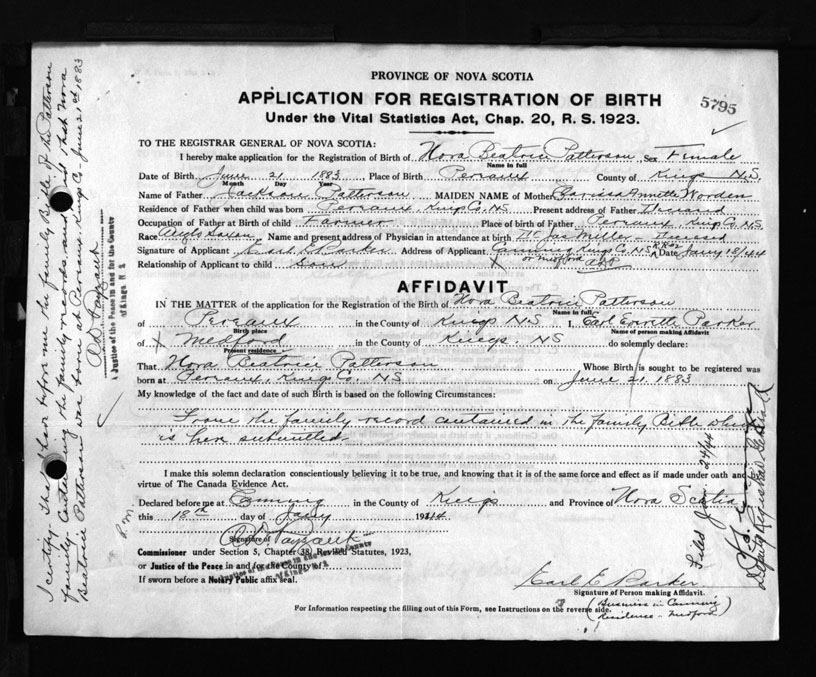 PROVINCE OF NOVA SCOTIA
APPLICATION FOR REGISTRATION OF BIRTH
5795
Under the Vital Statistics Act, Chap. 20, R. S. 1923.
TO THE REGISTRAR GENERAL OF NOVA SCOTIA:
I hereby make application for the Registration of Birth of Nora Beatrice Patterson Sex Female
Name in full
Date of Birth June 21 1883 Place of Birth Pereaux County of Kings N.S.
Month Day Year
Name of Father Jackson Patterson MAIDEN NAME of Mother Annette Worden
Residence of Father when child was born Pereaux, Kings Co. NS Present address of Father
Occupation of Father at Birth of child Farmer Place of birth of Father Pereaux Kings Co. NS
Race Anglo Saxon Name and present address of Physician in attendance at birth Miller
Signature of Applicant Earl E Parker Address of Applicant Canning Kings Co. NS R R #2 Date Jany 18/44
or medford
Relationship of Applicant to child Son
AFFIDAVIT
IN THE MATTER of the application for the Registration of the Birth of Nora Beatrice Patterson
Name in full
of Pereaux in the County of Kings NS I, Earl Everett Parker
Birth place Name of person making Affidavit
of Medford in the County of Kings, NS do solemnly declare:
Present residence
That Nora Beatrice Patterson Whose Birth is sought to be registered was
born at Pereaux, Kings Co. NS on June 21, 1883
My knowledge of the fact and date of such Birth is based on the following Circumstances:
From the family record contained in the family Bible which
is here submitted
I make this solemn declaration conscientiously believing it to be true, and knowing that it is of the same force and effect as if made under oath and by
virtue of The Canada Evidence Act.
Declared before me at Canning in the County of Kings and Province of Nova Scotia
this 18th day of Jany 1944
Signature of
Commissioner under Section 5, Chapter 38, Revised Statutes, 1923,
or Justice of the Peace in and for the County of
If sworn before a Notary Public affix seal.
Earl E Parker
Signature of Person making Affidavit.
For Information respecting the filling out of this Form, see Instructions on the reverse side.
(Business in Canning
Residence - Medford)
I certify that I have before me the family Bible of the Patterson
family containing the family records, and that Nora
Beatrice Patterson was born at Pereaux Kings Co. June 21st 1883
A Justice of the Peace in and for the County
of Kings N. S.
Filed Jan. 24/44
Deputy Registrar General